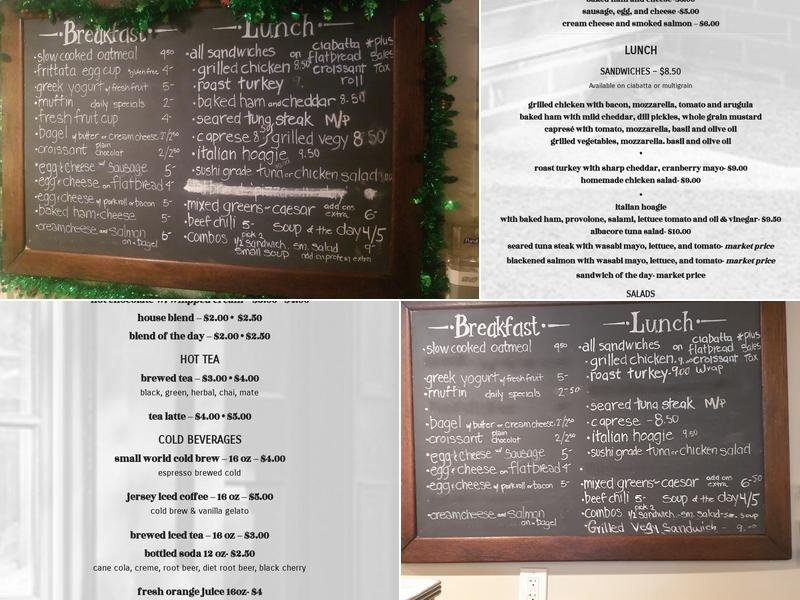 Breakfast
slow cooked oatmeal 4.50
frittata egg cup gluten free 4-
greek yogurt w/ fresh fruit 5-
muffin daily specials 2-
fresh fruit cup 4-
bagel w/ butter or cream cheese 2/2.50
croissant plain chocolat 2/2.50
egg & cheese w/ sausage 5-
egg & cheese on flatbread 4-
egg & cheese w/ pork roll or bacon 5-
baked ham & cheese 5-
cream cheese and salmon 6-
on a bagel
Lunch
all sandwiches on ciabatta flatbread croissant roll
*plus Sales Tax
grilled chicken 8.50
roast turkey 9.
baked ham and cheddar 8.50
seared tuna steak M/P
caprese 8.50 grilled vegy 8.50
italian hoagie 9.50
sushi grade tuna or chicken salad
mixed greens - caesar add ons extra 6-
beef chili 5- soup of the day 4/5
combos pick 2 9-
1/2 sandwich, sm. salad
small soup add on protein extra
sausage, egg, and cheese -$5.00
cream cheese and smoked salmon – $6.00
LUNCH
SANDWICHES – $8.50
Available on ciabatta or multigrain
grilled chicken with bacon, mozzarella, tomato and arugula
baked ham with mild cheddar, dill pickles, whole grain mustard
capresé with tomato, mozzarella, basil and olive oil
grilled vegetables, mozzarella. basil and olive oil
•
roast turkey with sharp cheddar, cranberry mayo- $9.00
homemade chicken salad- $9.00
•
Italian hoagie
with baked ham, provolone, salami, lettuce tomato and oil & vinegar- $9.50
albacore tuna salad- $10.00
seared tuna steak with wasabi mayo, lettuce, and tomato- market price
blackened salmon with wasabi mayo, lettuce, and tomato- market price
sandwich of the day- market price
SALADS
house blend – $2.00 • $2.50
blend of the day – $2.00 • $2.50
HOT TEA
brewed tea – $3.00 • $4.00
black, green, herbal, chai, mate
tea latte – $4.00 • $5.00
COLD BEVERAGES
small world cold brew – 16 oz – $4.00
espresso brewed cold
jersey iced coffee – 16 oz – $5.00
cold brew & vanilla gelato
brewed iced tea – 16 oz – $3.00
bottled soda 12 oz- $2.50
cane cola, creme, root beer, diet root beer, black cherry
fresh orange juice 16oz- $4
Breakfast
slow cooked oatmeal 4.50
greek yogurt w/ fresh fruit 5-
muffin daily specials 2.50
bagel w/ butter or cream cheese 2/2.50
croissant plain chocolat 2/2.50
egg & cheese w/ sausage 5-
egg & cheese on flatbread 4-
egg & cheese w/ pork roll or bacon 5-
cream cheese and salmon
on a bagel
Lunch
all sandwiches on ciabatta flatbread croissant wrap
*plus Sales Tax
grilled chicken. 9.00
roast turkey - 9.00
seared tuna steak M/P
caprese - 8.50
italian hoagie 9.50
sushi grade tuna or chicken salad
mixed greens - caesar add ons extra 6.50
beef chili 5- soup of the day 4/5
combos pick 2
1/2 sandwich, sm. salad - sm. soup
Grilled Vegy Sandwich - 9.00